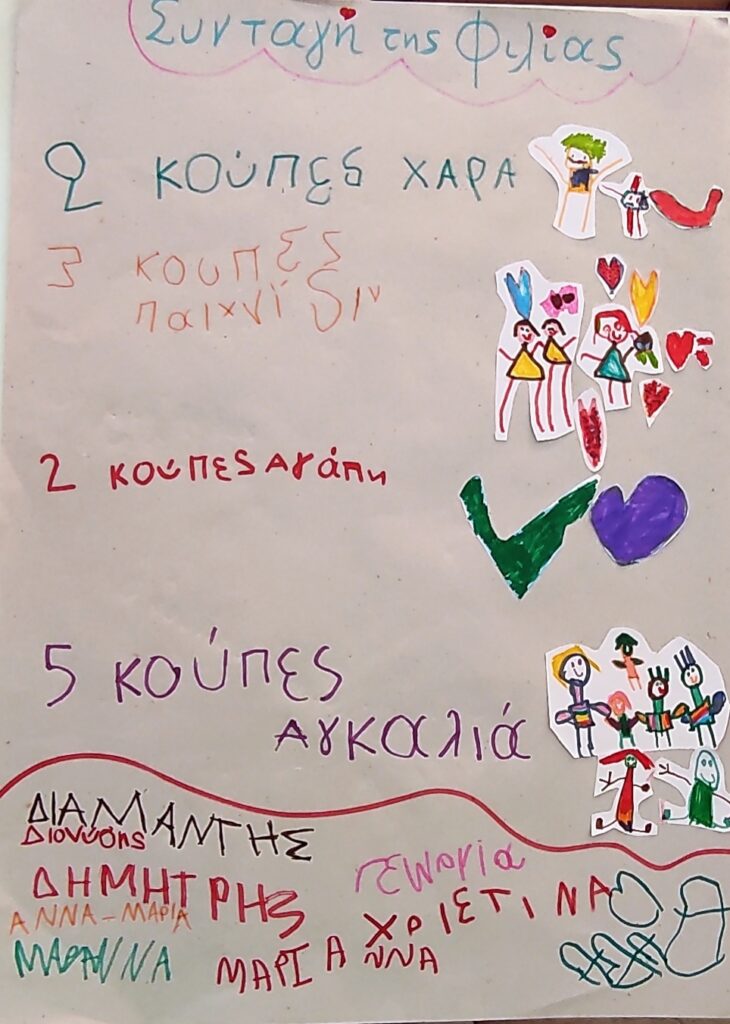 Συνταγή της Φιλίας
2 κούπες ΧΑΡΑ
3 κουπΕς
παιχνίδιν
2 κούπες Αγάπη
5 κούπες
Αγκαλιά
ΔΙΑΜΑΝΤΗΣ
Διονύσης
ΔΗΜΗΤΡΗΣ
Γεωργία
ΑΝΝΑ-ΜΑΡΙΑ
ΧΡΙΣΤΙΝΑ
ΜΑΡΑΝΝΑ
ΜΑΡΙΑΝΝΑ